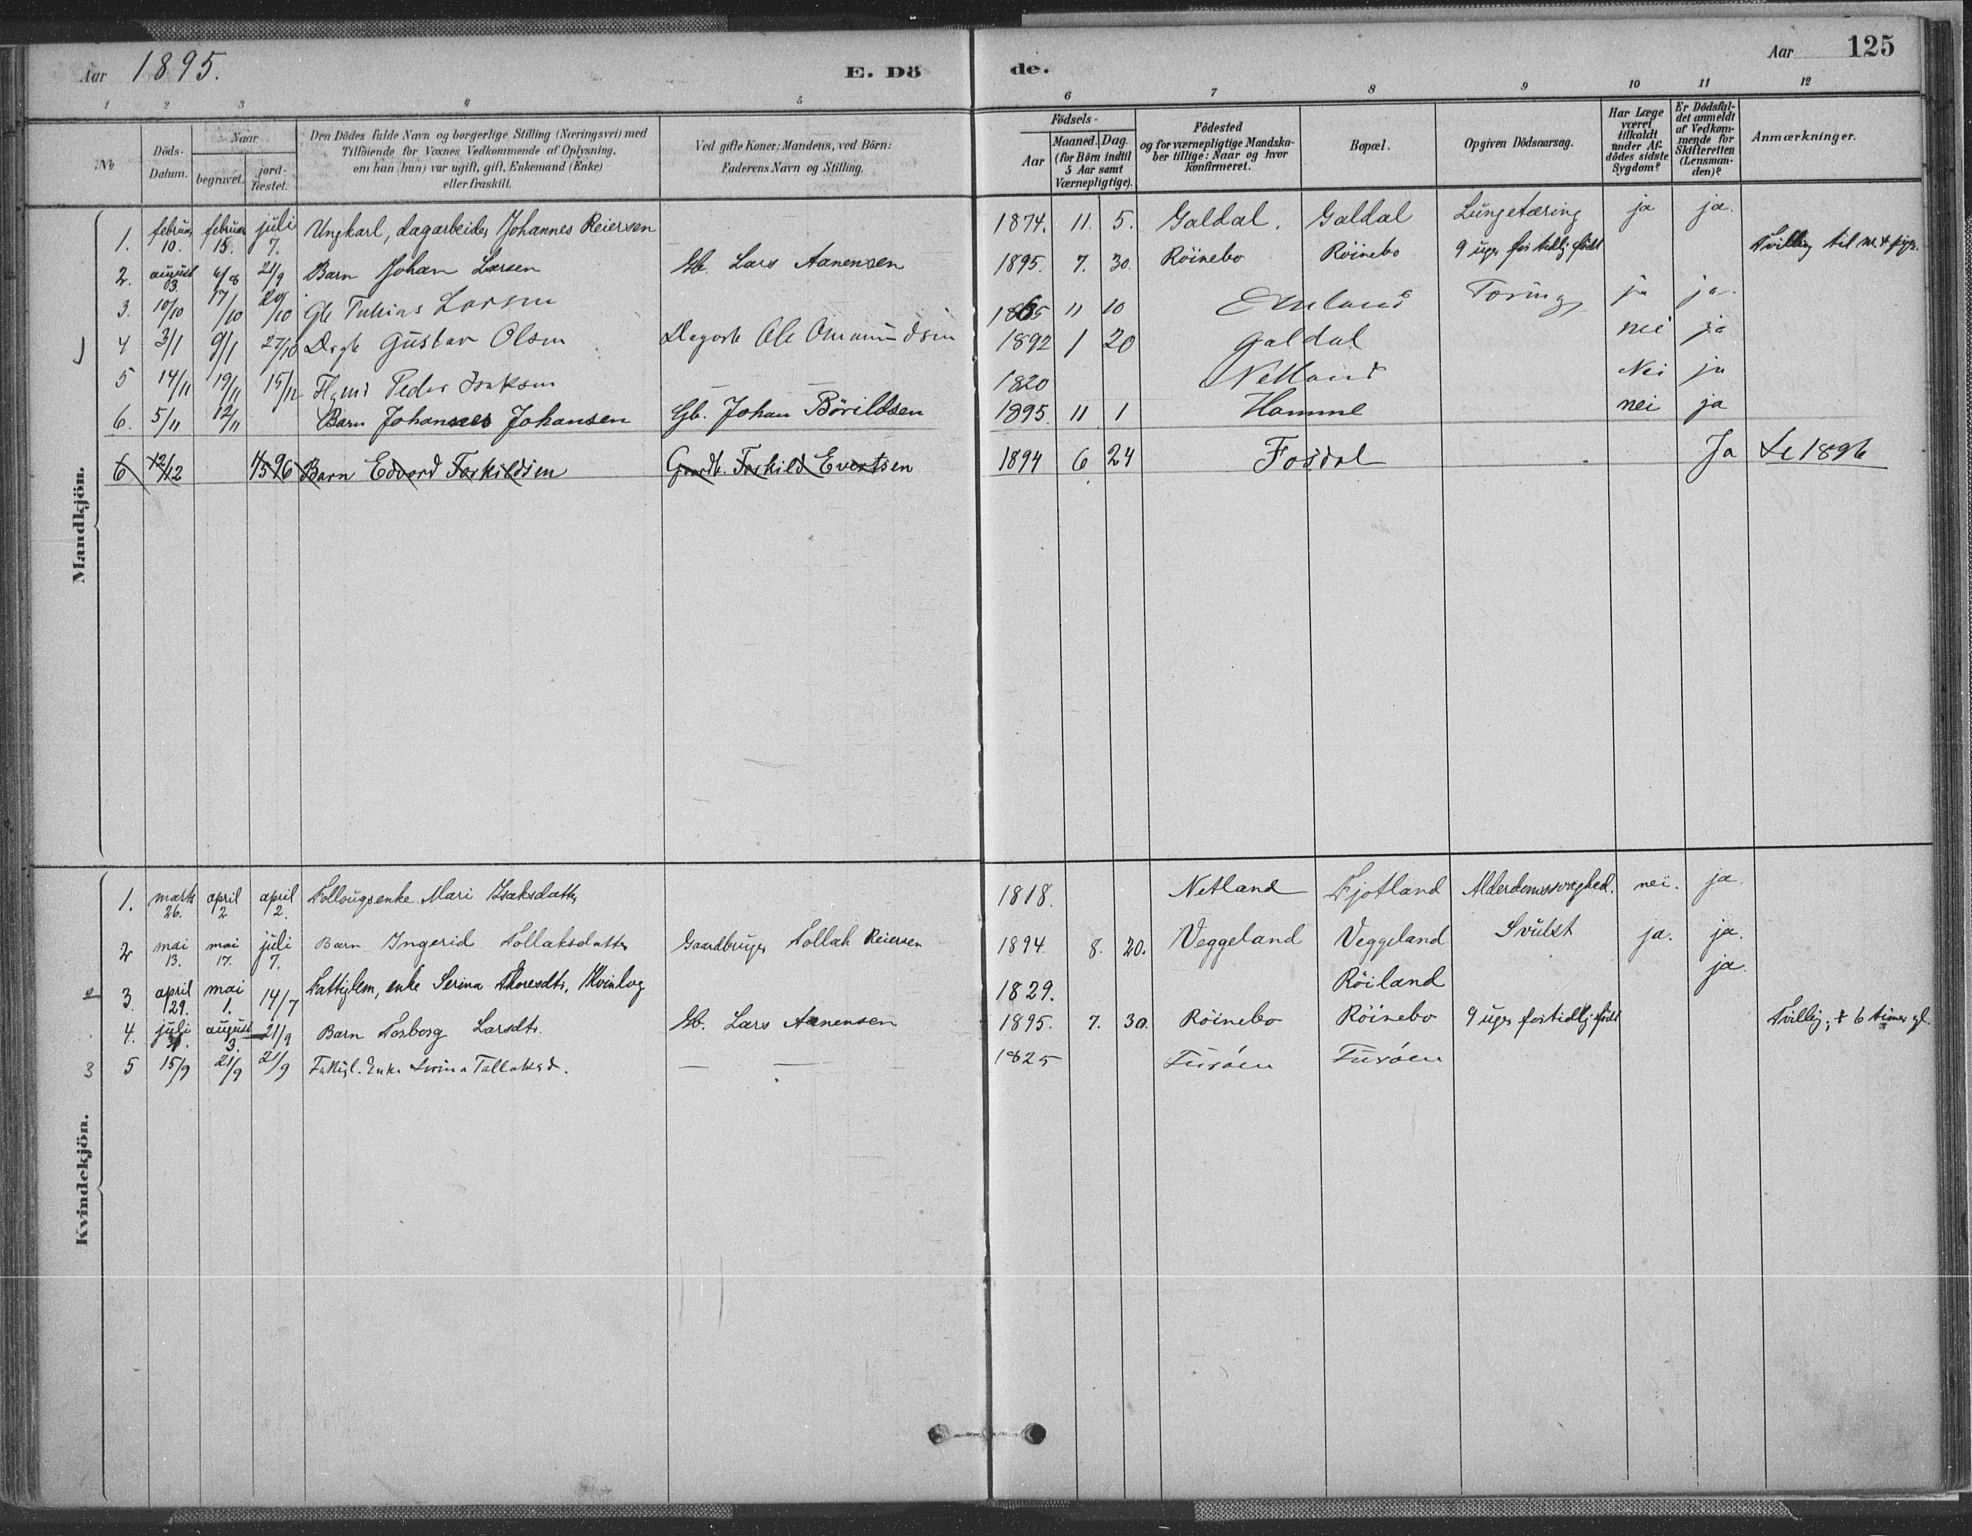 Aar 1895. E. Dö de. Aar 125
1 2 3 4 5 6 7 8 9 10 11 12
No
Döds-Datum.
Naar
begravet.
jord-fæstet.
Den Dödes fulde Navn og borgerlige Stilling (Næringsvei) med
Tilföiende for Voxnes Vedkommende af Oplysning,
om han (hun) var ugift, gift, Enkemand (Enke)
eller fraskilt.
Ved gifte Koner; Mandens, ved Börn:
Faderens Navn og Stilling.
Födsels-
Aar
Maaned. Dag
(for Börn indtil
5 Aar samt
Værnepligtige).
Födested
og for værnepligtige Mandska-
ber tillige: Naar og hvor
Konfirmeret.
Bopæl.
Opgiven Dödsaarsag.
Har Læge
været
tilkaldt
under Af-
dödes sidste
Sygdom?
Er Dödsfal-
det anmeldt
af Vedkom-
mende for
Skifteretten
(Lensman-
den)?
Anmærkninger.
Mandkjön.
1. februar 10. februar 15. juli 7. Ungkarl, dagarbeider Johannes Reiersen 1874. 11. 5. Galdal. Galdal Lungetæring ja ja.
2. august 3. 6/8 21/9 Barn Johan Larsen Gb. Lars Aanensen 1895. 7. 30. Röinebo Röinebo 9 uger for tidlig födt Tvilling til nr 4
3. 10/10 17/10 20/10 Gb Tobias Larsen 11 10 Tæring ja ja.
4 3/1 9/1 27/10 Gustav Olsen Ole Ommundsen 1892 1 20 Galdal nei ja
5 14/11 19/11 15/12 Peder Isaksen 1820 Netland Nei ja
6. 5/11 12/11 Barn Johannes Johansen Gb. Johan Börildsen 1895 11 1 Homme nei ja
6 12/12 Barn Edvard Torkildsen Gaardb. Torkild Evertsen 1894 6 24 Fosdal Ja Se 1896
Kvindekjön.
1. marts 26. april 2 april 2. Follougsenke Mari Isaksdatter 1818. Netland Fjotland Alderdomssvaghed. nei. ja.
2 mai 13. mai 17. juli 7. Barn Ingerid Tollaksdatter Gaardbruger Tollak Reiersen 1894. 8. 20. Veggeland Veggeland Svulst ja. ja.
2 3. april 29. mai 1. 14/7 Fattiglem, enke Serina Thoresdtr. Kvinlog 1829. Röiland ja.
4. juli august 3. 21/9 Barn Torborg Larsdtr. Gb. Lars Aanensen 1895. 7. 30. Röinebo Röinebo 9 uger for tidlig födt Tvilling, + 6 timer gl.
3 5 15/9 21/9 21/9 Enke Tollaksd. — — 1825 Tusöen Tusöen